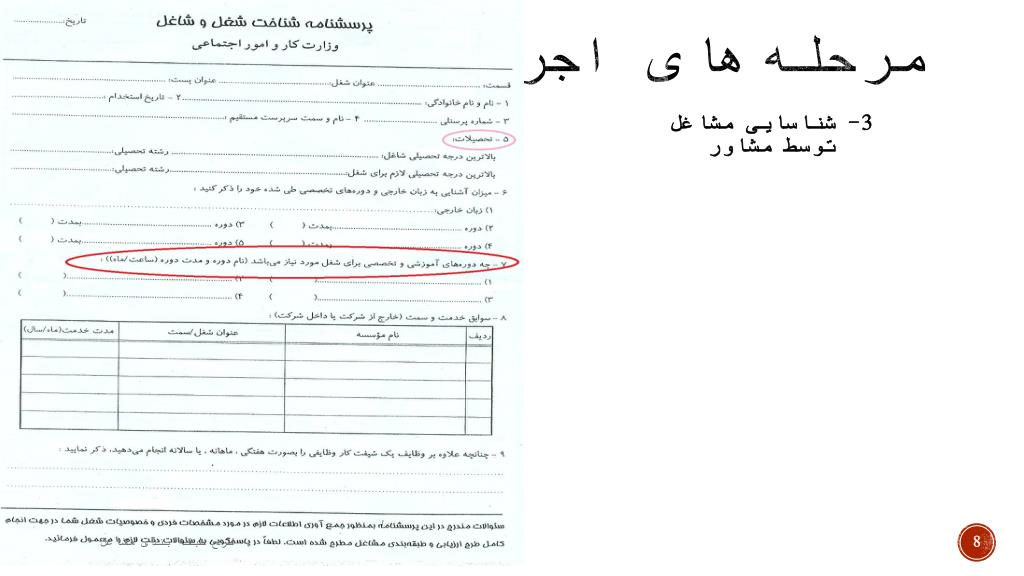 مرحله های اجر
3- شناسایی مشاغل
توسط مشاور
پرسشنامه شناخت شغل و شاغل
تاریخ:....................
وزارت کار و امور اجتماعی
قسمت: .................... عنوان شغل:.................... عنوان پست: ....................
۱ - نام و نام خانوادگی: .................... ۲ - تاریخ استخدام :....................
۳ - شماره پرسنلی .................... ۴ - نام و سمت سرپرست مستقیم :....................
۵ - تحصیلات:
بالاترین درجه تحصیلی شاغل: .................... رشته تحصیلی:....................
بالاترین درجه تحصیلی لازم برای شغل:.................... رشته تحصیلی:....................
۶ - میزان آشنایی به زبان خارجی و دوره‌های تخصصی طی شده خود را ذکر کنید :
۱) زبان خارجی:....................
۲) دوره ....................بمدت ( ) ۳) دوره ....................بمدت ( )
۴) دوره ....................بمدت ( ) ۵) دوره ....................بمدت ( )
۷ - چه دوره‌های آموزشی و تخصصی برای شغل مورد نیاز می‌باشد (نام دوره و مدت دوره (ساعت/ماه)) :
۱) ....................( ) ۲) ....................( )
۳) ....................( ) ۴) ....................( )
۸ - سوابق خدمت و سمت (خارج از شرکت یا داخل شرکت) :
ردیف نام مؤسسه عنوان شغل/سمت مدت خدمت(ماه/سال)
۹ - چنانچه علاوه بر وظایف یک شیفت کار وظایفی را بصورت هفتگی ، ماهانه ، یا سالانه انجام می‌دهید، ذکر نمایید :
سئوالات مندرج در این پرسشنامه بمنظور جمع آوری اطلاعات لازم در مورد مشخصات فردی و خصوصیات شغل شما در جهت انجام
کامل طرح ارزیابی و طبقه‌بندی مشاغل مطرح شده است. لطفاً در پاسخگویی به سئوالات دقت لازم را معمول فرمائید.
8